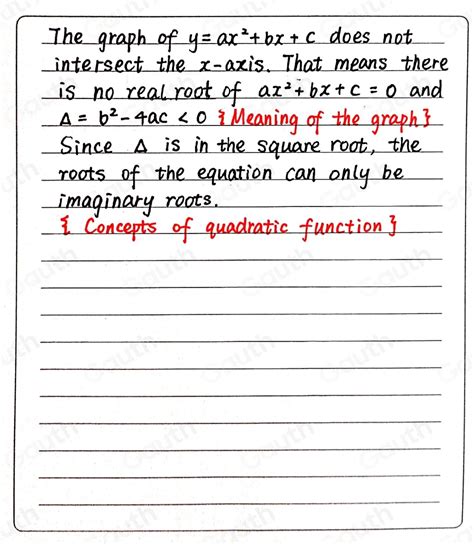 The graph of y = ax²+bx+c does not
intersect the x-axis. That means there
is no real root of ax²+bx+c = 0 and
Δ = b²-4ac < 0 { Meaning of the graph }
Since Δ is in the square root, the
roots of the equation can only be
imaginary roots.
{ Concepts of quadratic function }
Gauth
Gauth
Gauth
Gauth
Gauth
Gauth